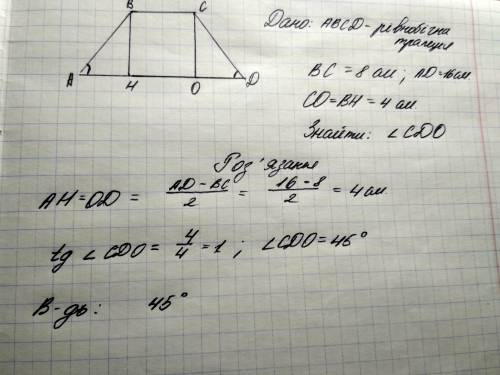 B C
A H O D
Дано: ABCD - рівнобічна
трапеція
BC = 8 см ; AD = 16 см
CO = BH = 4 см
Знайти: ∠CDO
Роз'язання
AH = OD = (AD - BC)/2 = (16 - 8)/2 = 4 см
tg ∠CDO = 4/4 = 1 ; ∠CDO = 45°
В-дь: 45°